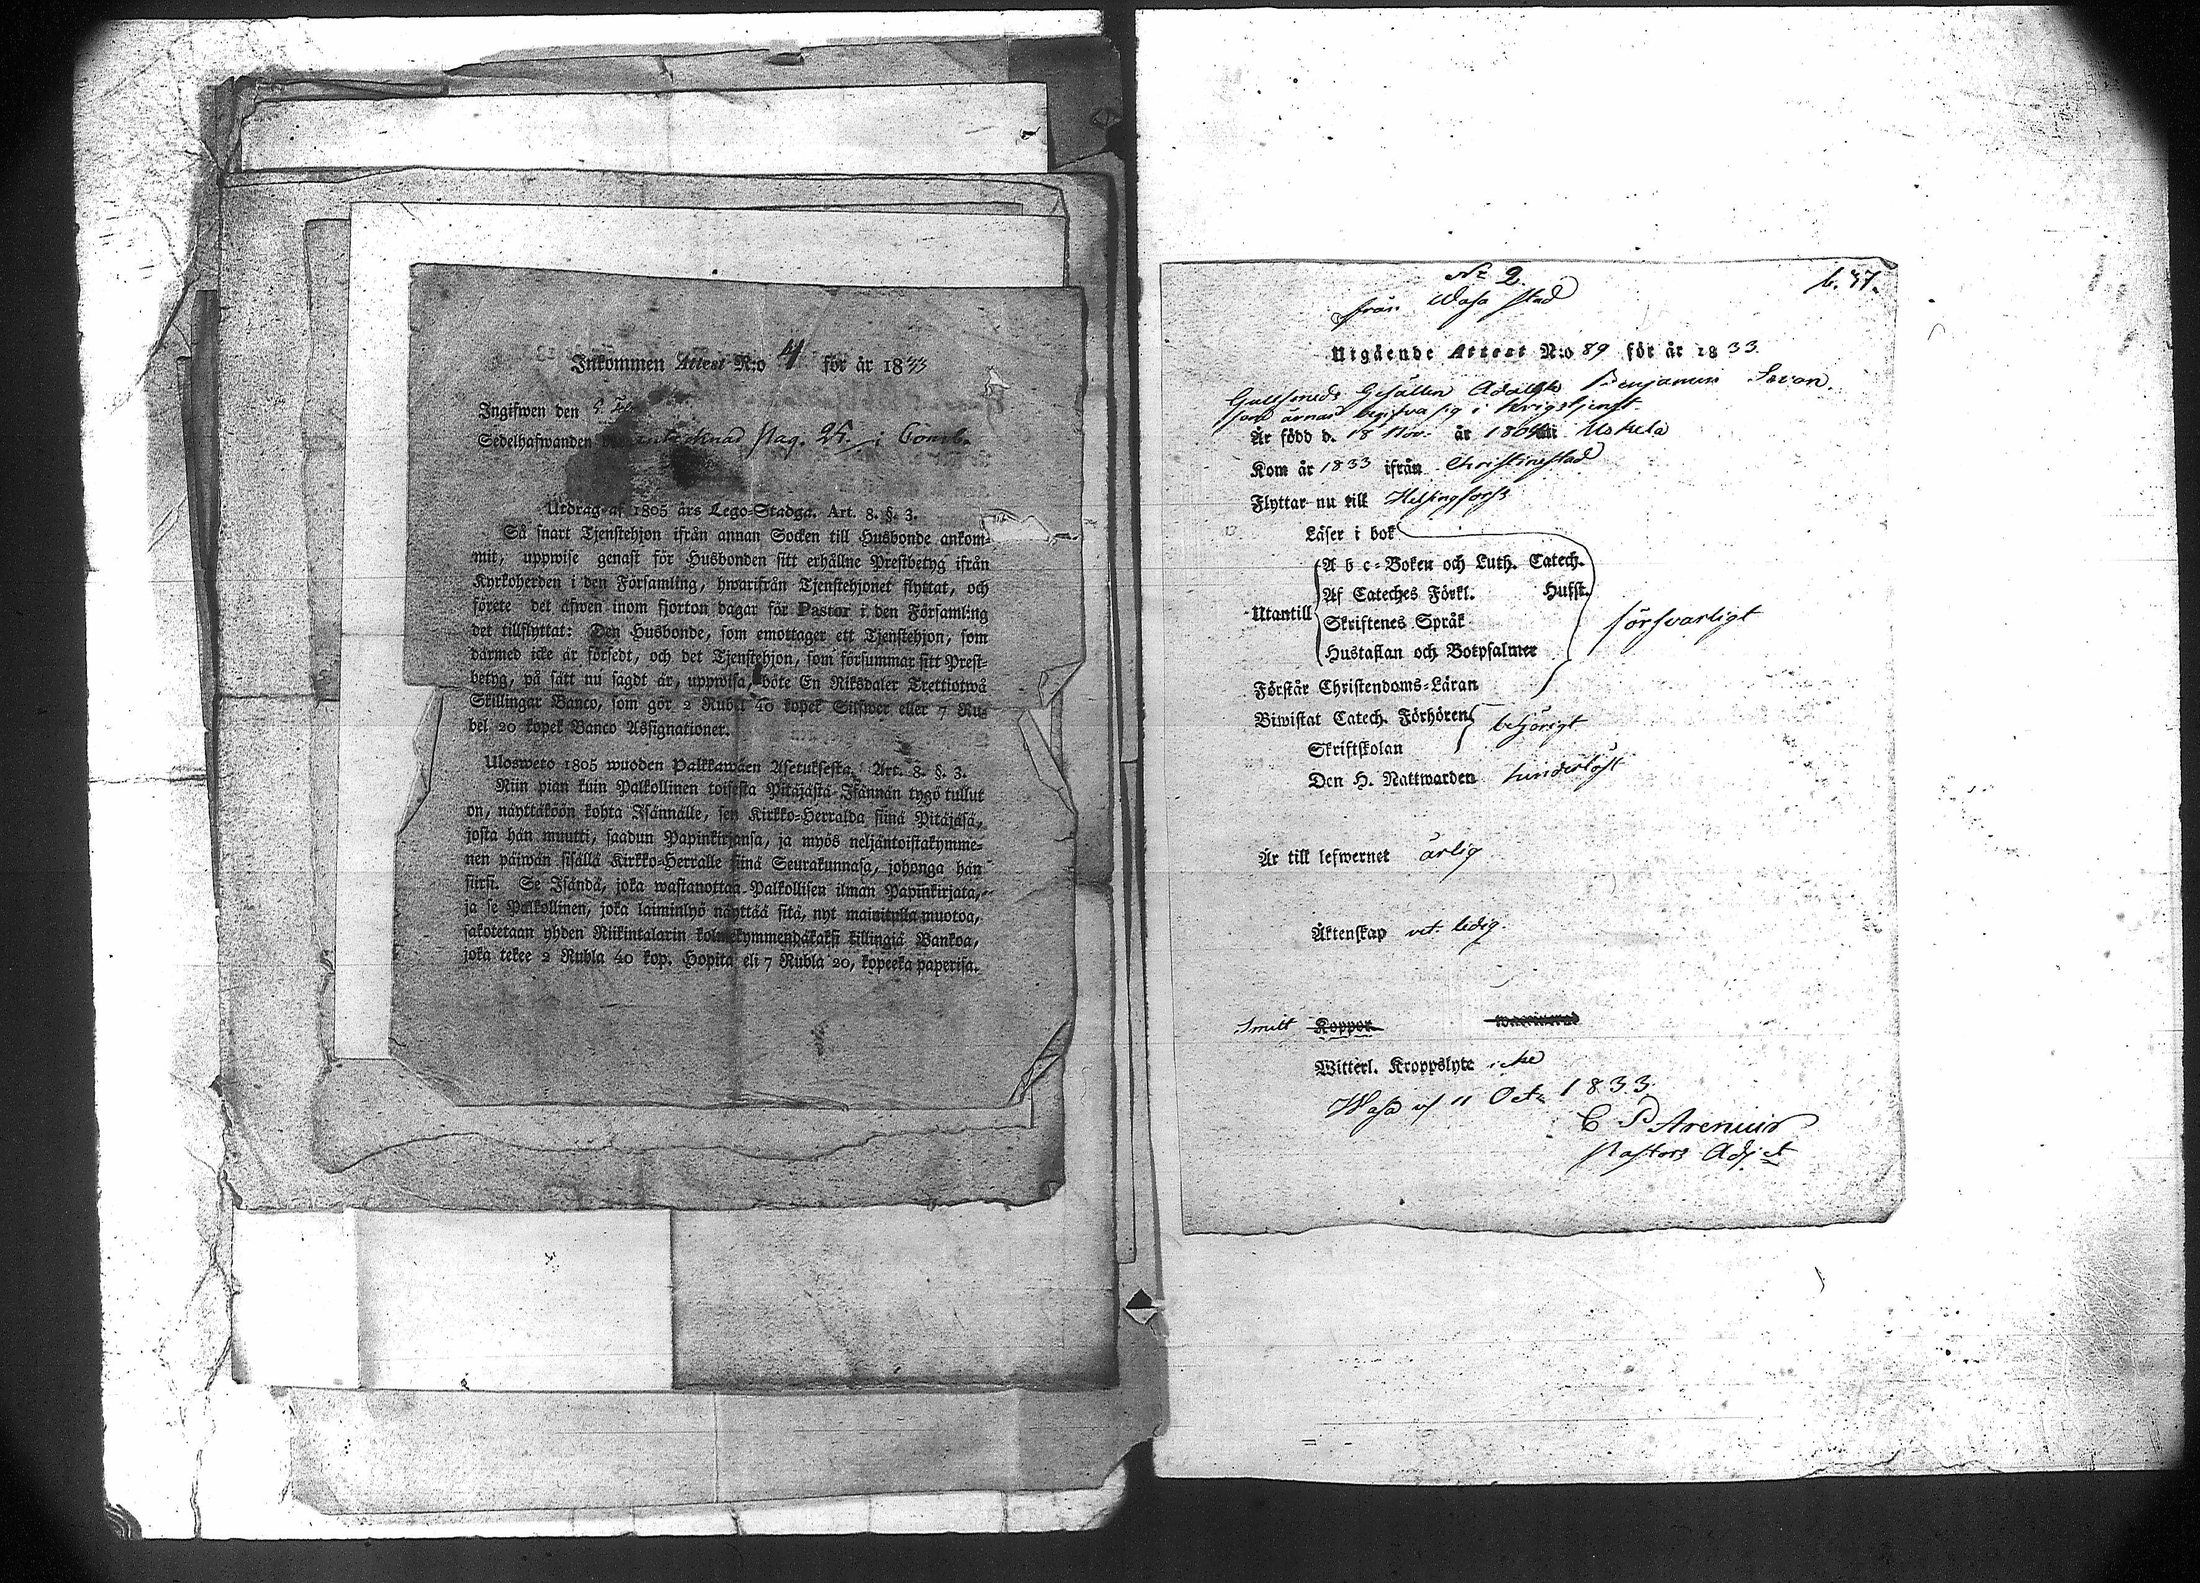 Inkommen Attest N:o 4 för år 1833
Ingifwen den
Sedelhafwanden antecknad pag. 25. i
Utdrag af 1805 års Lego-Stadga. Art. 8. §. 3.
Så snart Tjenstehjon ifrån annan Socken till Husbonde ankom-
mit, uppwise genast för Husbonden sitt erhållne Prestbetyg ifrån
Kyrkoherden i den Församling, hwarifrån Tjenstehjonet flyttat, och
förete det äfwen inom fjorton dagar för Pastor i den Församling
det tillflyttat: Den Husbonde, som emottager ett Tjenstehjon, som
därmed icke är försedt, och det Tjenstehjon, som försummar sitt Prest-
betyg, på sätt nu sagdt är, uppwisa, böte En Riksdaler Trettiotwå
Skillingar Banco, som gör 2 Rubel 40 kopek Silfwer eller 7 Ru-
bel 20 kopek Banco Assignationer.
Ulosweto 1805 wuoden Palkkawäen Asetuksesta, Art. 8. §. 3.
Niin pian kuin Palkollinen toisesta Pitäjästä Isännän tygö tullut
on, näyttäköön kohta Isännälle, sen Kirkko-Herralda siinä Pitäjäsä,
josta hän muutti, saadun Papinkirjansa, ja myös neljäntoistakymme-
nen päiwän sisällä Kirkko-Herralle siinä Seurakunnasa, johonga hän
siirsi. Se Isändä, joka wastanottaa Palkollisen ilman Papinkirjata,
ja se Palkollinen, joka laiminlyö näyttää sitä, nyt mainitulla muotoa,
sakotetaan yhden Riikintalarin kolmekymmendäkaksi killingiä Bankoa,
joka tekee 2 Rubla 40 kop. Hopita eli 7 Rubla 20, kopeeka paperisa.
No 2.
från Wasa stad
b. 37.
Utgående Attest N:o 89 för år 1833.
Gullsmeds Gesällen Adolph Benjamin
som ärnar begifva sig i Krigstjenst.
Är född d. 18 Nov. år i Uskela
Kom år 1833 ifrån Christinestad
Flyttar nu till Helsingfors
Läser i bok
A b c-Boken och Luth. Catech.
Af Cateches Förkl. Hufst.
Utantill
Skriftenes Språk
försvarligt
Hustaflan och Botpsalmer
Förstår Christendoms-Läran
Biwistat Catech. Förhören
behörigt
Skriftskolan
Den H. Nattwarden hinderlöst
Är till lefwernet ärlig
Äktenskap vet. ledig.
Koppor
Witterl. Kroppslyte icke
Wasa d 11 Oct. 1833.
C P Arenius
Pastors Adjct